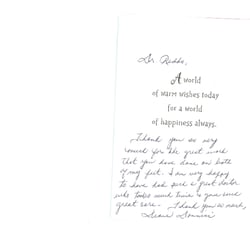 Dr. Redds,
A world
of warm wishes today
for a world
of happiness always.
Thank you so very
much for the great work
that you have done on both
of my feet. I am very happy
to have had such a great doctor
who takes such time & gives such
great care. Thank you so much,